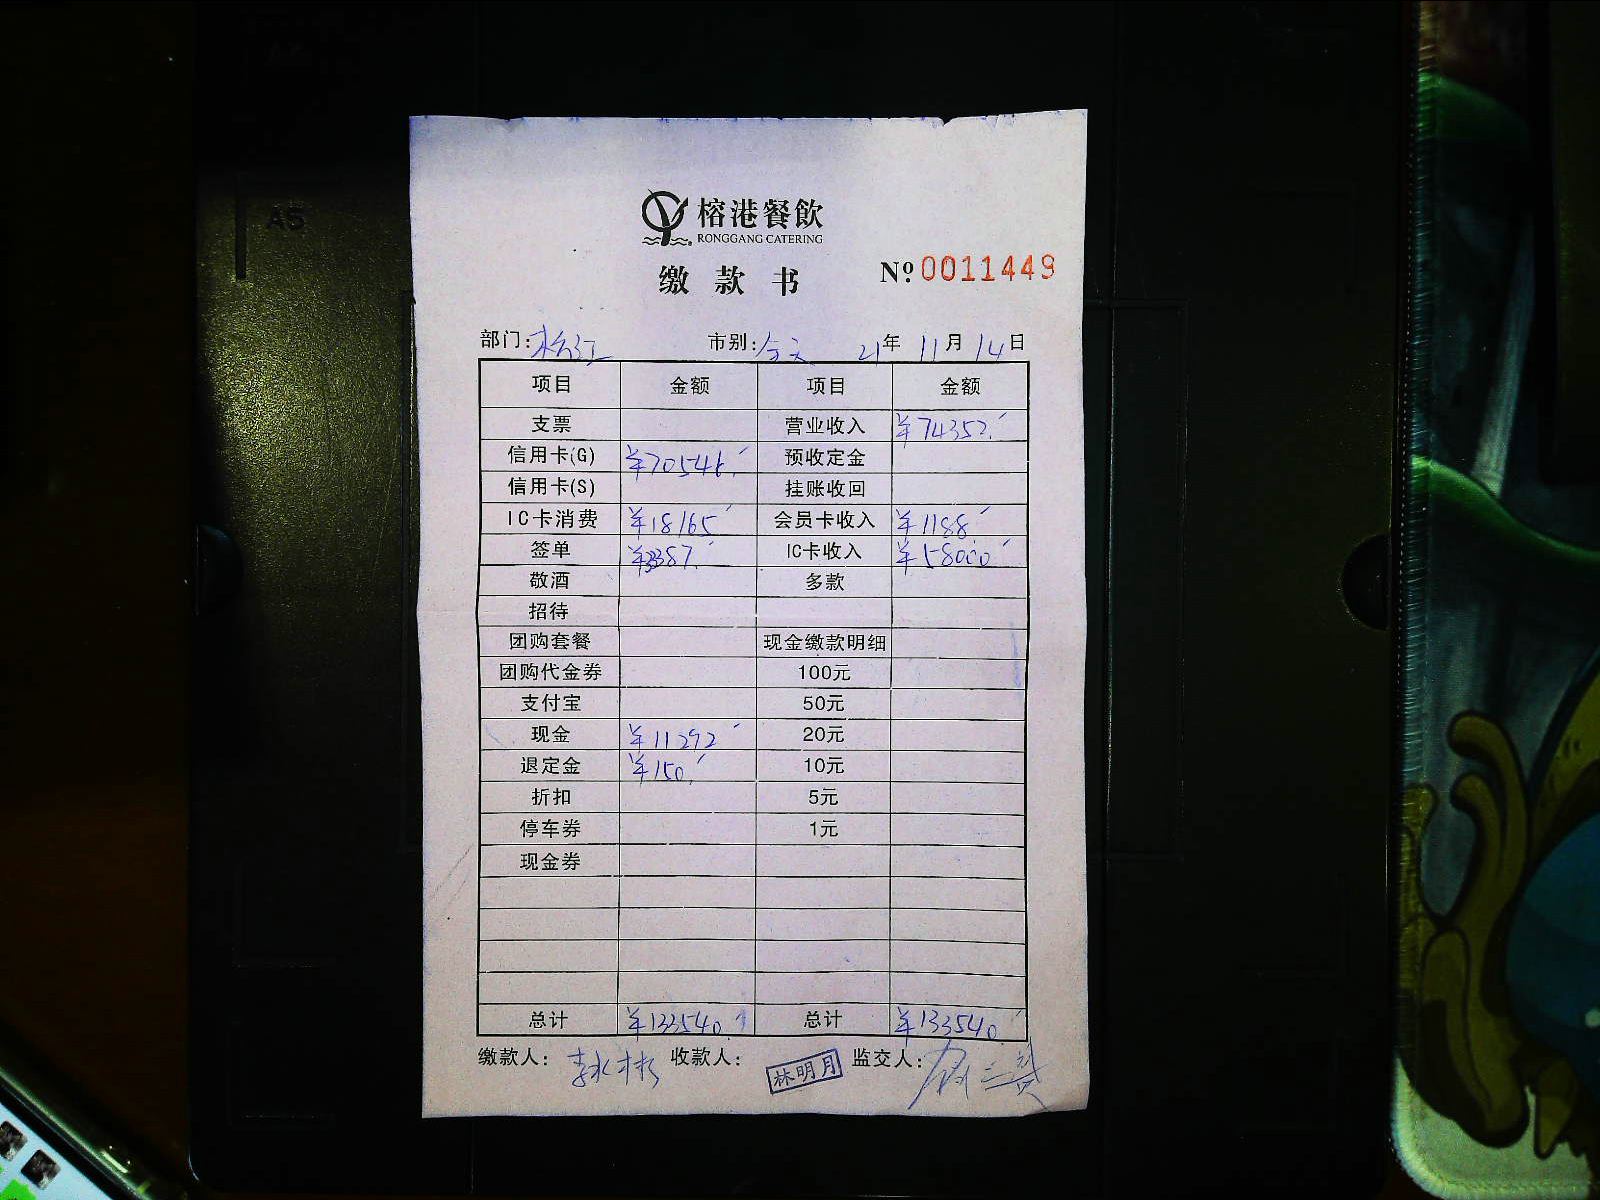 A5
榕港餐飲
RONGGANG CATERING
缴款书 Nº 0011449
部门: 松江 市别: 全天 21年 11月 14日
项目 金额 项目 金额
支票 营业收入 ¥74352.
信用卡(G) ¥70546. 预收定金
信用卡(S) 挂账收回
IC卡消费 ¥18165 会员卡收入 ¥1188
签单 ¥33387. IC卡收入 ¥58000
敬酒 多款
招待
团购套餐 现金缴款明细
团购代金券 100元
支付宝 50元
现金 ¥11292 20元
退定金 ¥150. 10元
折扣 5元
停车券 1元
现金券
总计 ¥133540 总计 ¥133540
缴款人: 收款人: 林明月 监交人: